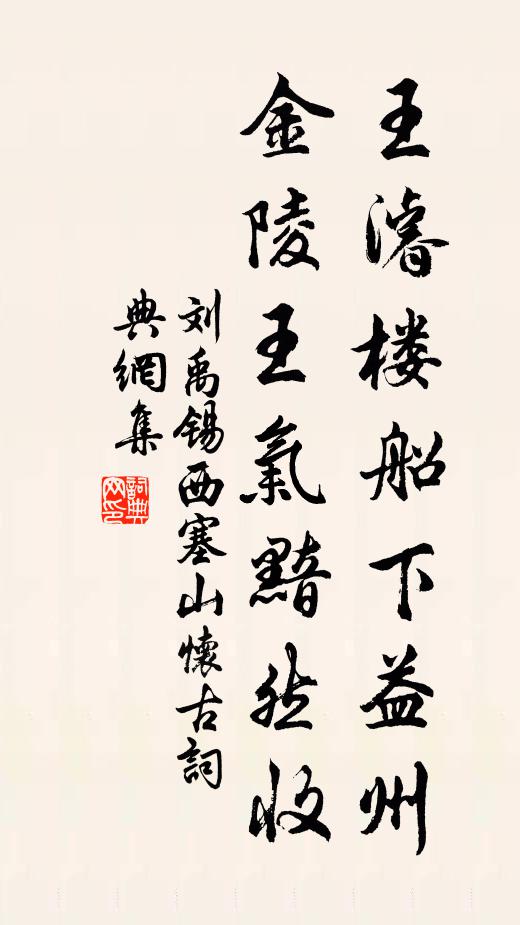 王濬楼船下益州
金陵王氣黯然收
刘禹锡西塞山懷古詞
典網集
詞典网印